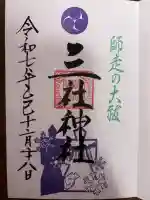 師走の大祓
三社神社
令和七年十二月十八日